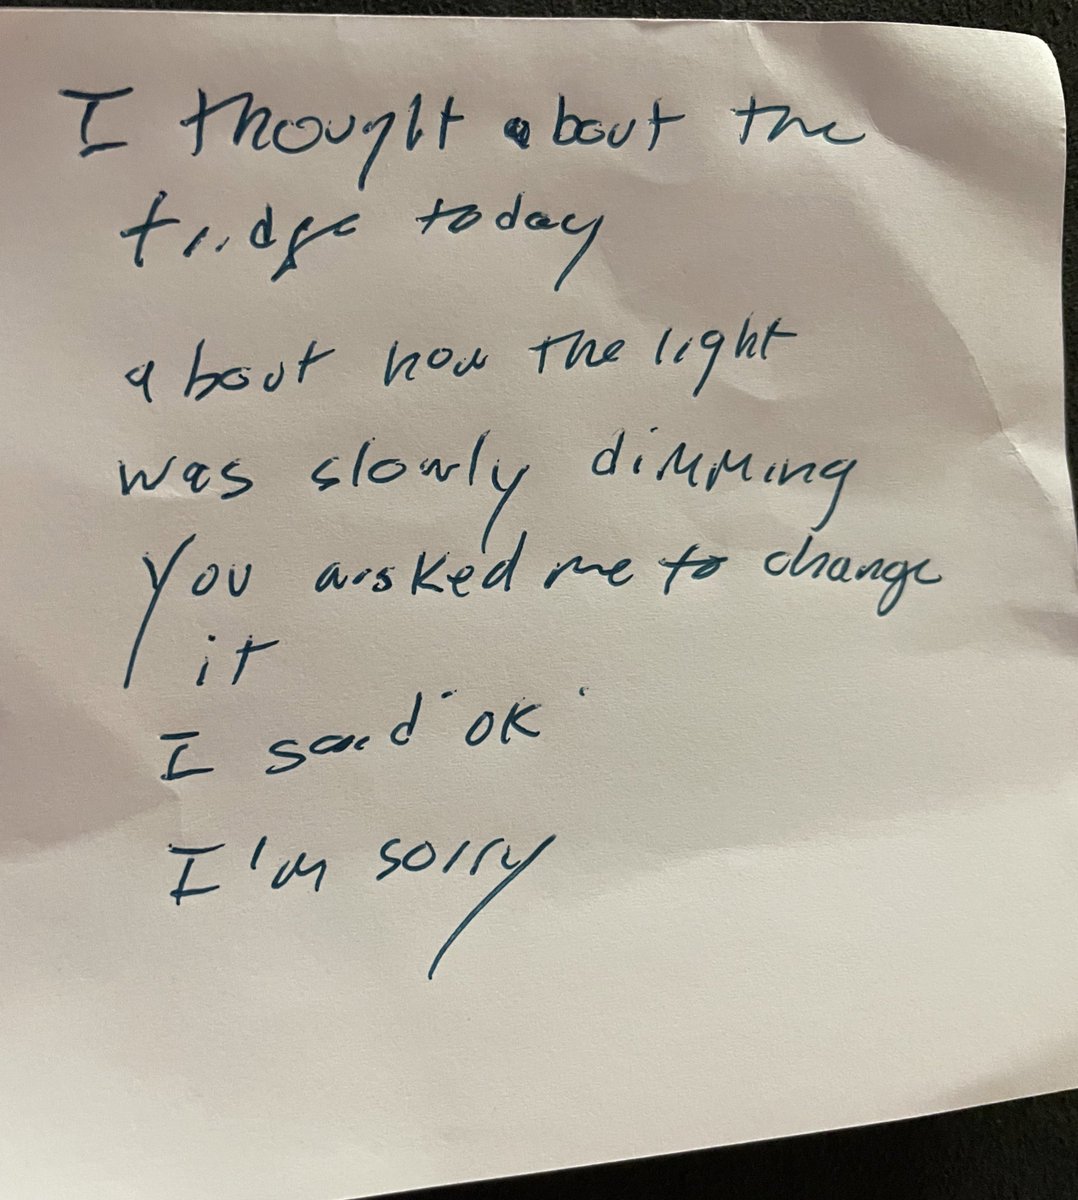 I thought about the
fridge today
about how the light
was slowly dimming
You asked me to change
it
I said "ok"
I'm sorry